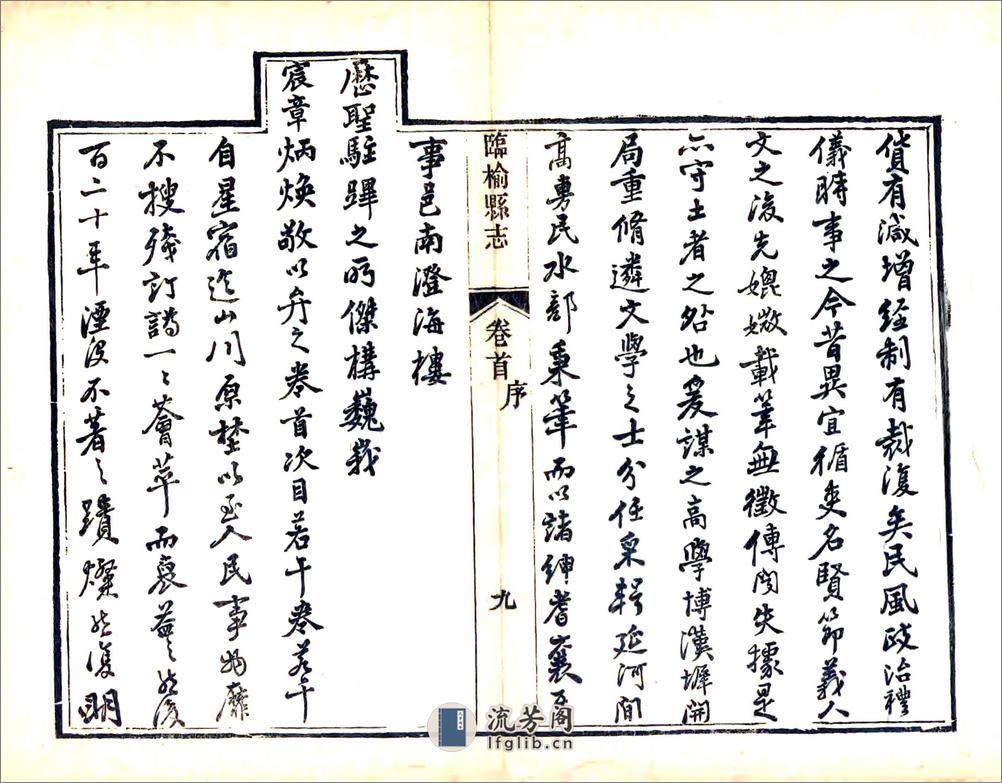 貨有減增經制有裁復矣民風政治禮
儀時事之今昔異宜循吏名賢節義人
文之後先媲媺載筆無徵傳聞失據是
亦守土者之咎也爰謀之高學博漢墀開
局重脩遴文學之士分任采輯延河間
高勇民水部秉筆而以諸紳耆襄
臨榆縣志
卷首
序
九
事邑南澄海樓
歷聖駐蹕之所傑構巍峩
宸章炳煥敬以弁之卷首次目若干卷若干
自星宿迄山川原埜以至人民事物靡
不搜殘訂譌一〻薈萃而裒益之然後
百二十年湮沒不著之蹟燦然復明
流芳阁
lfglib.cn